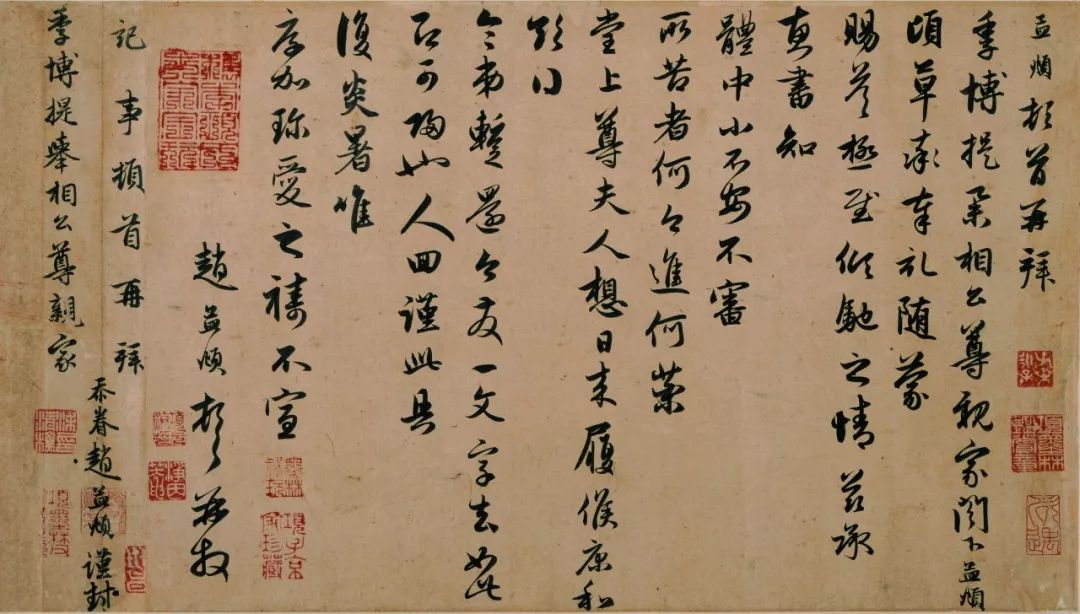 孟頫頓首再拜
季博提舉相公尊親家閣下孟頫
頃草率奉札随蒙
賜答極至傾馳之情茲承
惠書知
體中小不安不審
所苦者何今進何藥
堂上尊夫人想日来履候康和
令弟暫還今友一文字去如此
可也人回謹此具
復炎暑唯
厚加珍愛之禱不宣
趙孟頫頓首再拜
記事頓首再拜
忝眷趙孟頫謹封
季博提舉相公尊親家
墨林秘玩
項子京家珍藏